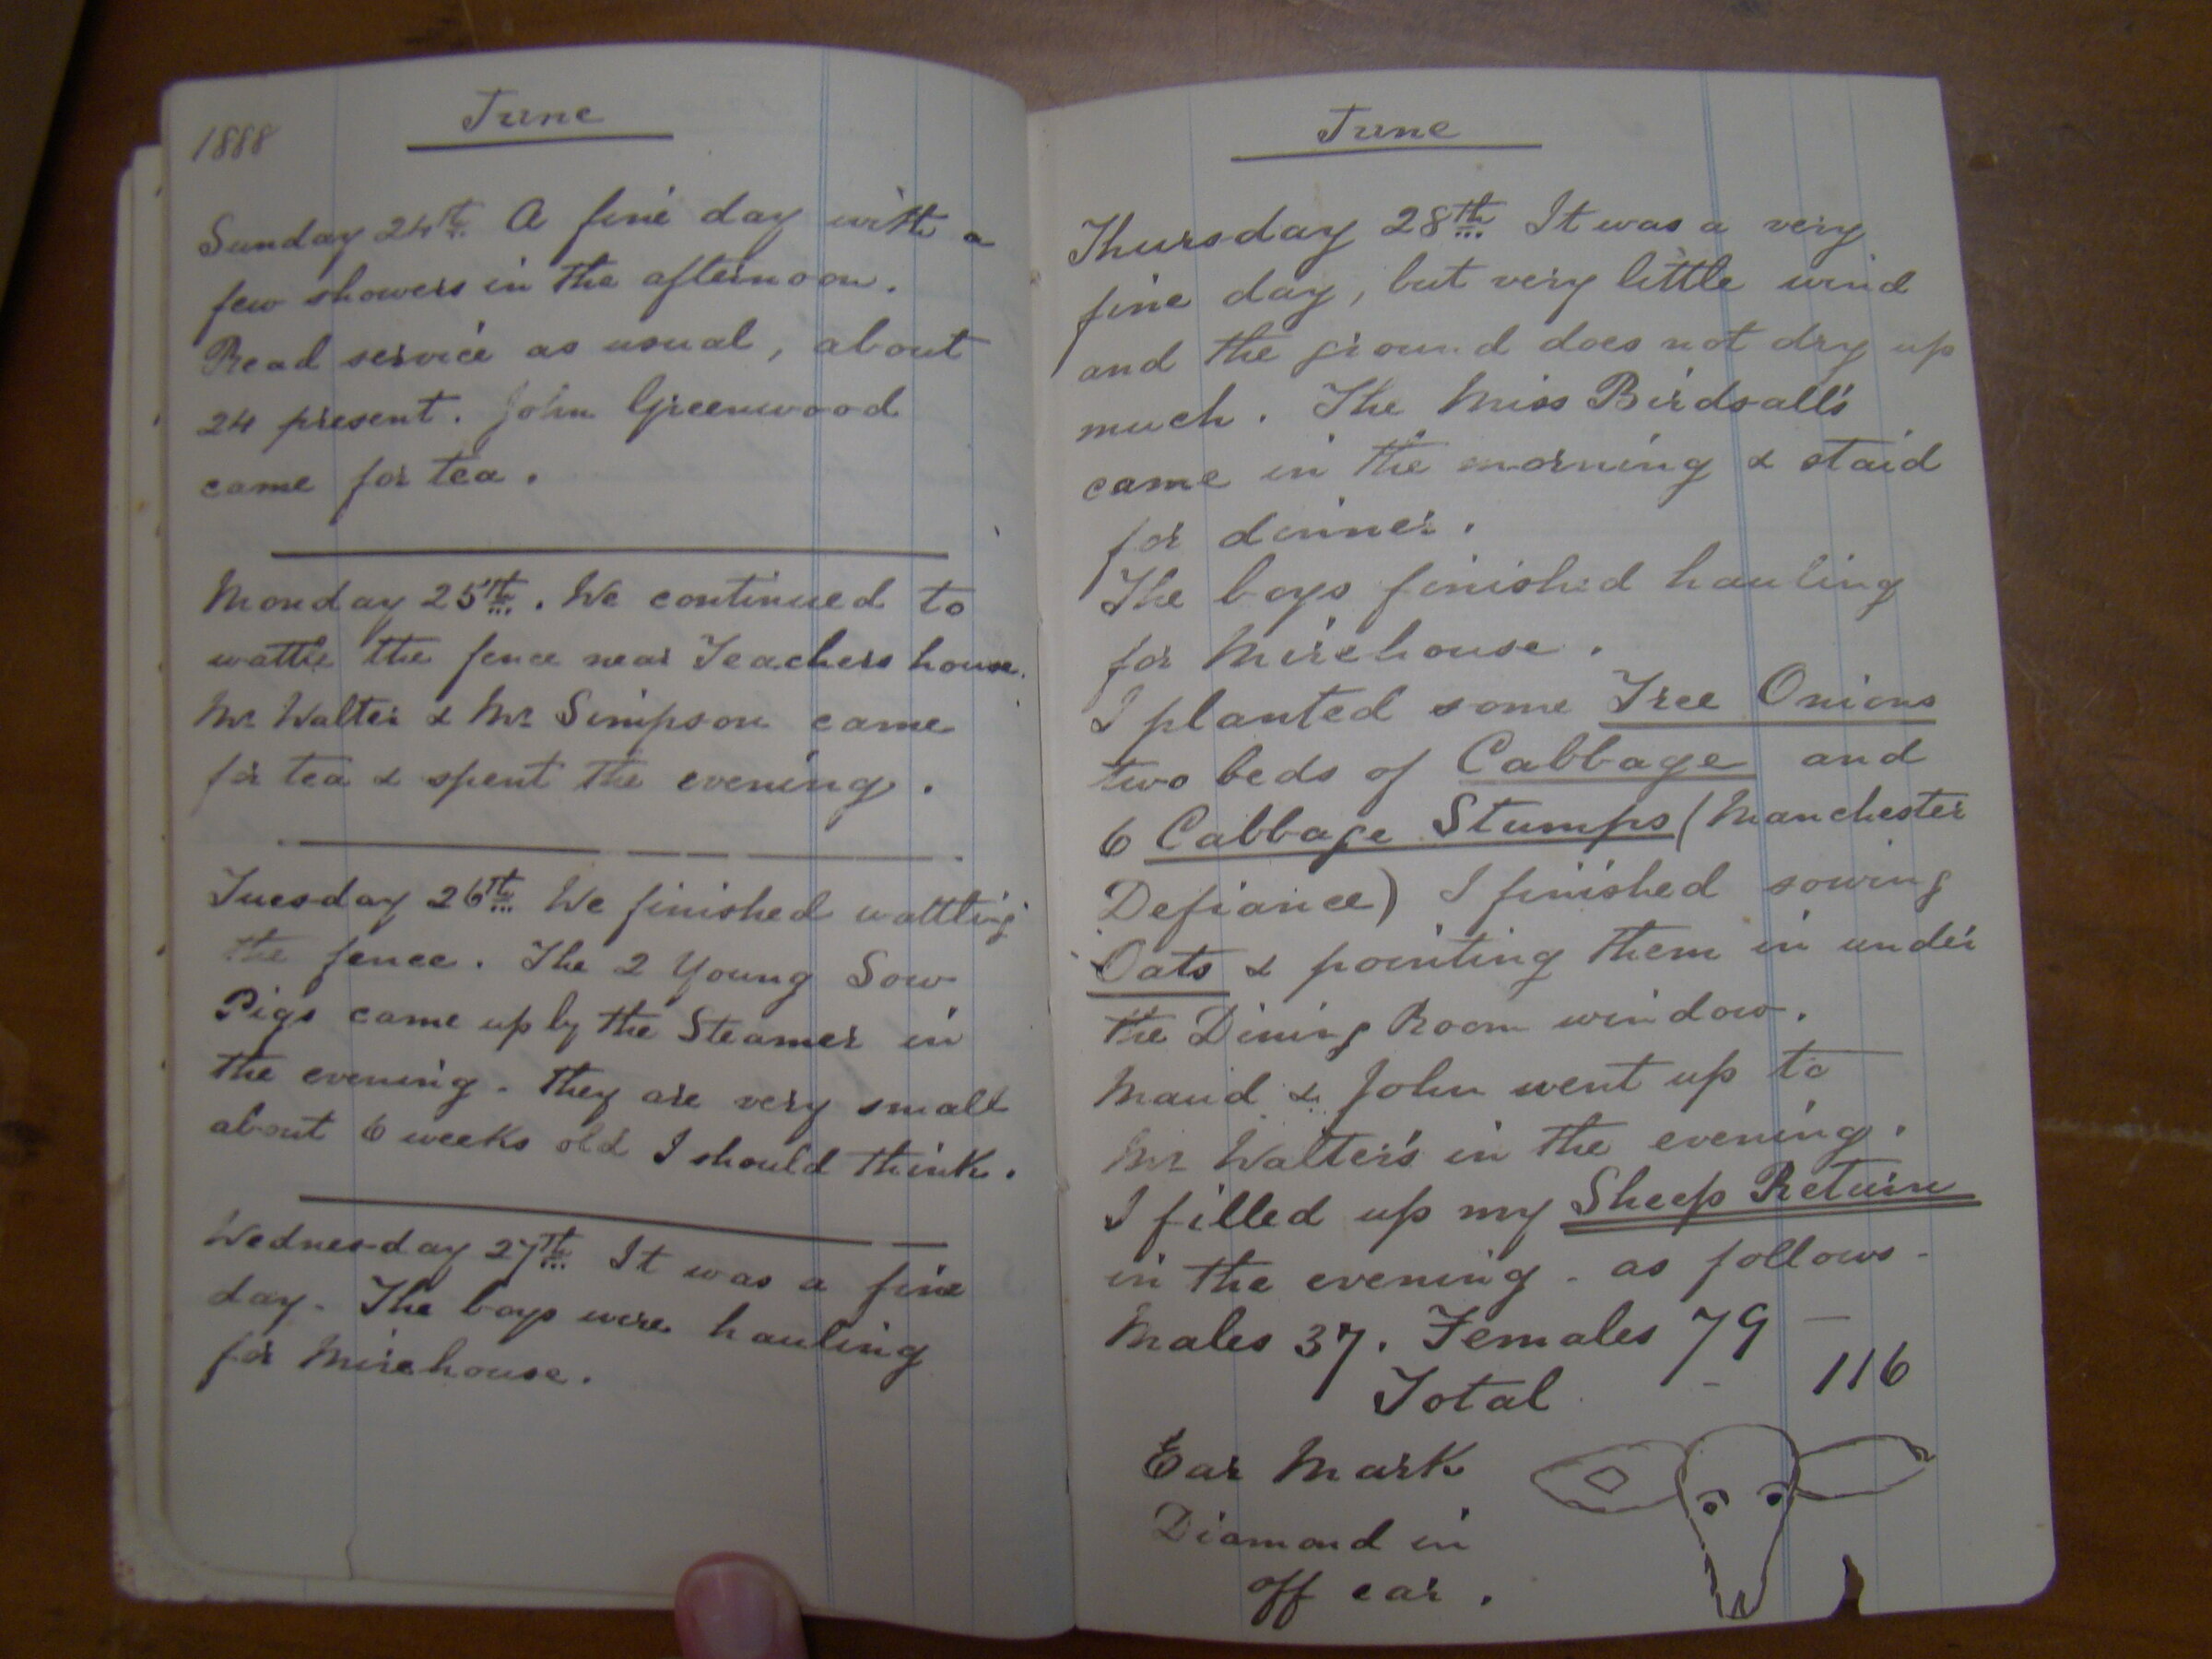 1888
June
Sunday 24th A fine day with a
few showers in the afternoon.
Read service as usual, about
24 present. John Greenwood
came for tea.
Monday 25th. We continued to
wattle the fence near Teachers house.
Mr Walter & Mr Simpson came
for tea & spent the evening.
Tuesday 26th We finished wattling
the fence. The 2 Young Sow
Pigs came up by the Steamer in
the evening. They are very small
about 6 weeks old I should think.
Wednesday 27th It was a fine
day. The boys were hauling
for Mirehouse.
June
Thursday 28th It was a very
fine day, but very little wind
and the ground does not dry up
much. The Miss Birdsall's
came in the morning & staid
for dinner.
The boys finished hauling
for Mirehouse.
I planted some Tree Onions
two beds of Cabbage and
6 Cabbage Stumps (Manchester
Defiance) I finished sowing
Oats & pointing them in under
the Dining Room window.
Maud & John went up to
Mr Walter's in the evening.
I filled up my Sheep Return
in the evening - as follows -
Males 37. Females 79 -
Total - 116
Ear Mark
Diamond in
off ear.